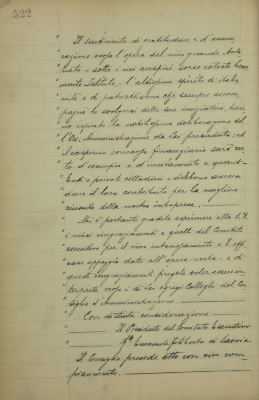 322
" Il sentimento di gratitudine e d'ammi
" razione verso l'opera del mio grande Ante
" nato, sotto i cui auspici sorse cotesto bene
" merito Istituto, l'altissimo spirito di
" e di patriottismo che sempre accom
" pagnò lo svolgersi delle sue iniziative, han
" no ispirato la nobilissima deliberazione del
" l'On. Amministrazione da Lei presieduta; ed
" il cospicuo concorso finanziario sarà cer
" to d'esempio e d'incitamento a quanti
" Enti e privati cittadini debbono ancora
" dare il loro contributo per la migliore
" riuscita della nostra impresa.
" Mi è pertanto gradito esprimere alla S.V.
" i miei ringraziamenti e quelli del Comitato
" esecutivo per il vivo interessamento e l'effi
" cace appoggio dato all'opera nostra, e di
" questi ringraziamenti pregola voler essere in
" terprete verso i di Lei egregi Colleghi del Con
" siglio d'Amministrazione.
" Con distinta considerazione
" Il Presidente del Comitato Esecutivo
" Fto Emanuele Filiberto di Savoia
Il Consiglio prende atto con vivo com
piacimento.